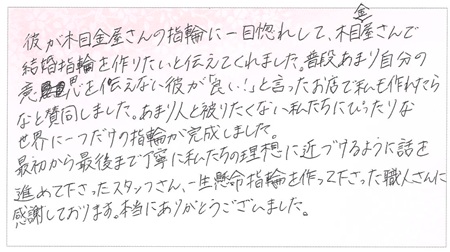 彼が木目金屋さんの指輪に一目惚れして、木目金屋さんで
結婚指輪を作りたいと伝えてくれました。普段あまり自分の
意思を伝えない彼が「良い!」と言ったお店で私も作れたら
なと賛同しました。あまり人と被りたくない私たちにぴったりな
世界に一つだけの指輪が完成しました。
最初から最後まで丁寧に私たちの理想に近づけるように話を
進めて下さったスタッフさん、一生懸命指輪を作って下さった職人さんに
感謝しております。本当にありがとうございました。